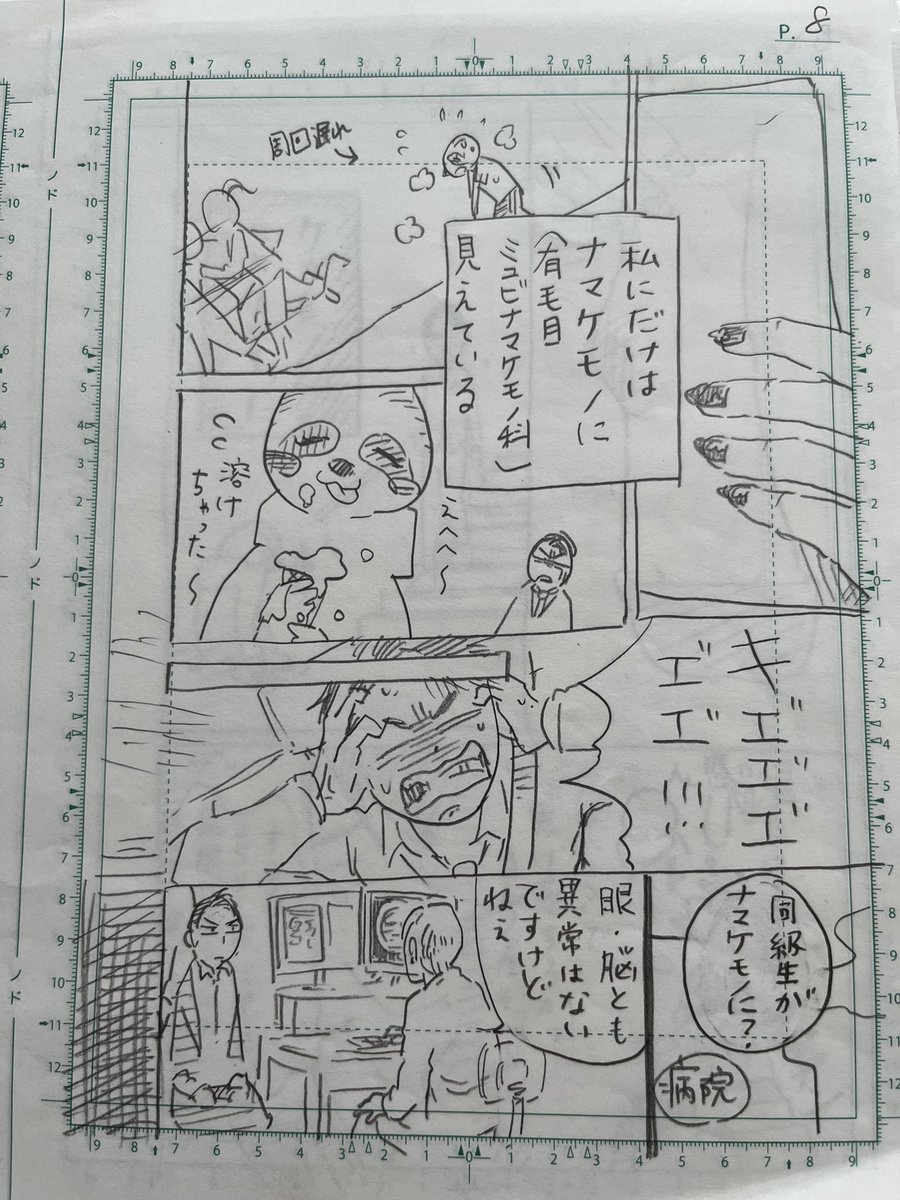 P. 8
周回遅れ
私にだけは
ナマケモノに
(有毛目
ミユビナマケモノ科)
見えている
えへへ〜
溶け
ちゃった〜
キエエエ
エエ!!!
同級生が
ナマケモノに?
病院
眼・脳とも
異常はない
ですけど
ねえ
ノド
ノド
ノド